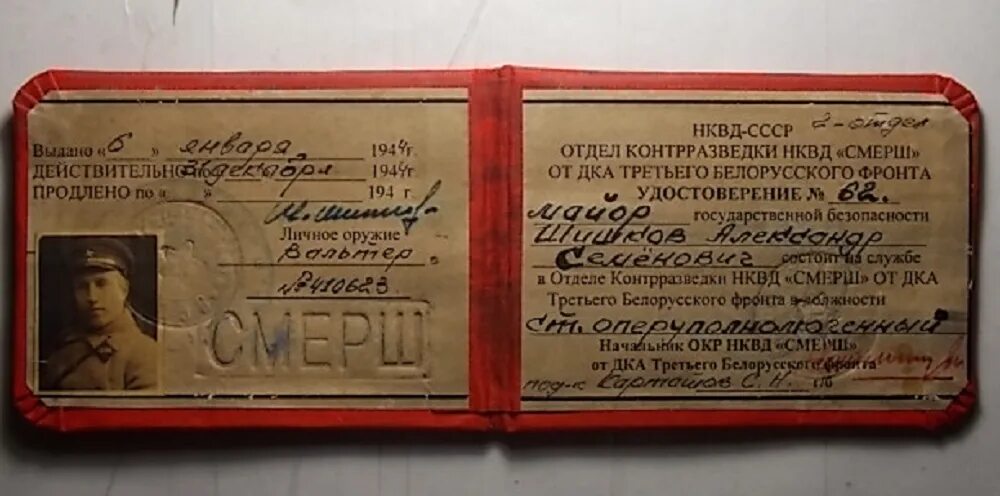 Выдано « 6 » января 1944г.
ДЕЙСТВИТЕЛЬНО 31 декабря 1944г.
ПРОДЛЕНО по « » 194 г.
Личное оружие
Вальтер
№ 410623
СМЕРШ
2-отдел
НКВД-СССР
ОТДЕЛ КОНТРРАЗВЕДКИ НКВД «СМЕРШ»
ОТ ДКА ТРЕТЬЕГО БЕЛОРУССКОГО ФРОНТА
УДОСТОВЕРЕНИЕ № 62.
майор государственной безопасности
Шишков Александр
Семёнович состоит на службе
в Отделе Контрразведки НКВД «СМЕРШ» ОТ ДКА
Третьего Белорусского фронта в должности
ст. оперуполномоченный
Начальник ОКР НКВД «СМЕРШ»
от ДКА Третьего Белорусского фронта
под-к Карташов С. Н. г/б